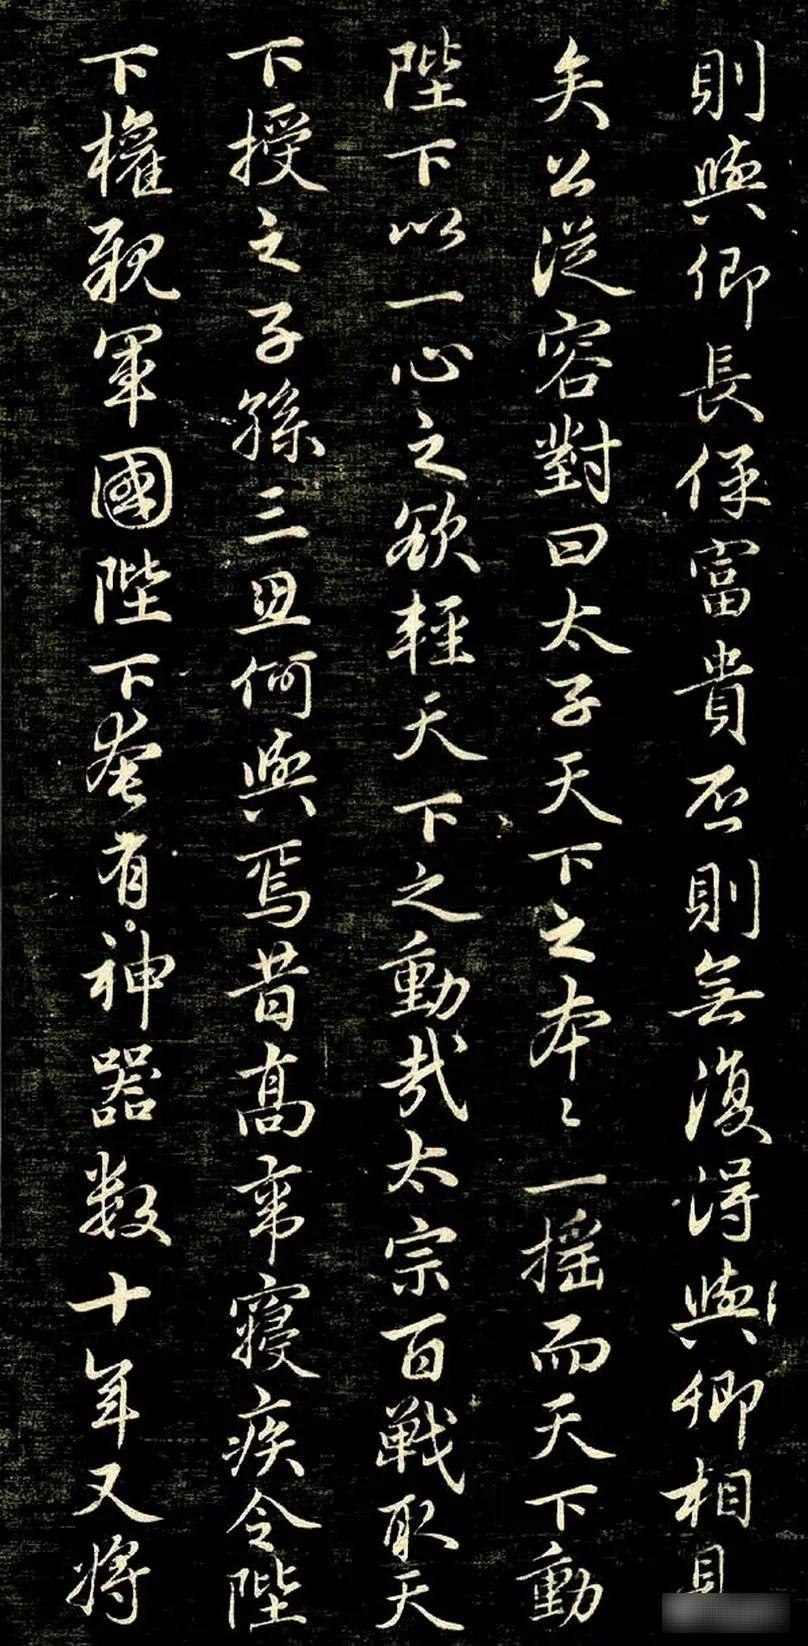 則與卿長保富貴否則無復得與卿相見
矣公從容對曰太子天下之本〻一摇而天下動
陛下以一心之欲輕天下之動哉太宗百戰取天
下授之子孫三思何與焉昔高帝寢疾令陛
下權親軍國陛下奄有神器数十年又將